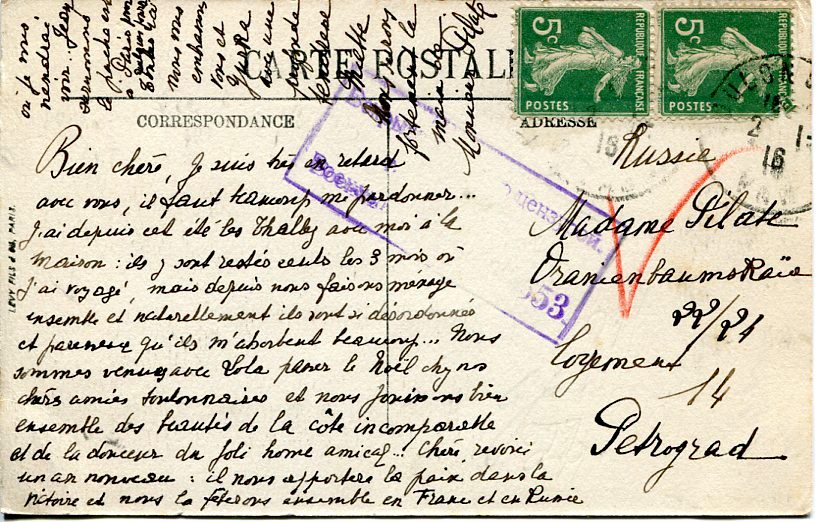 CARTE POSTALE
CORRESPONDANCE
ADRESSE
5c
REPUBLIQUE FRANÇAISE
POSTES
5c
REPUBLIQUE FRANÇAISE
POSTES
16
2 1-
16
LEVY FILS & Cie, PARIS.
цензурой.
Bien chéré, je suis très en retard
avec vous, il faut beaucoup me pardonner...
J'ai depuis cet été les Thalby avec moi à la
maison: ils y sont restés seuls les 3 mois où
j'ai voyagé, mais depuis nous faisons ménage
ensemble et naturellement ils sont si désordonnés
et paresseux qu'ils m'absorbent beaucoup... Nous
sommes venues avec Lola passer le Noël chez nos
chères amies toulonnaises et nous jouissons bien
ensemble des beautés de la côte incomparable
et de la douceur du joli home amical... Chéré, revoici
un an nouveau: il nous apportera la paix dans la
victoire et nous la fêterons ensemble en France et en Russie
où je vous
Nous vous
embrassons
avec une
profonde
tendresse
fortement la
main de
Monsieur Pilate
Russie
Madame Pilate
Oranienbaumskaïa
22/24
Logement
14
Petrograd